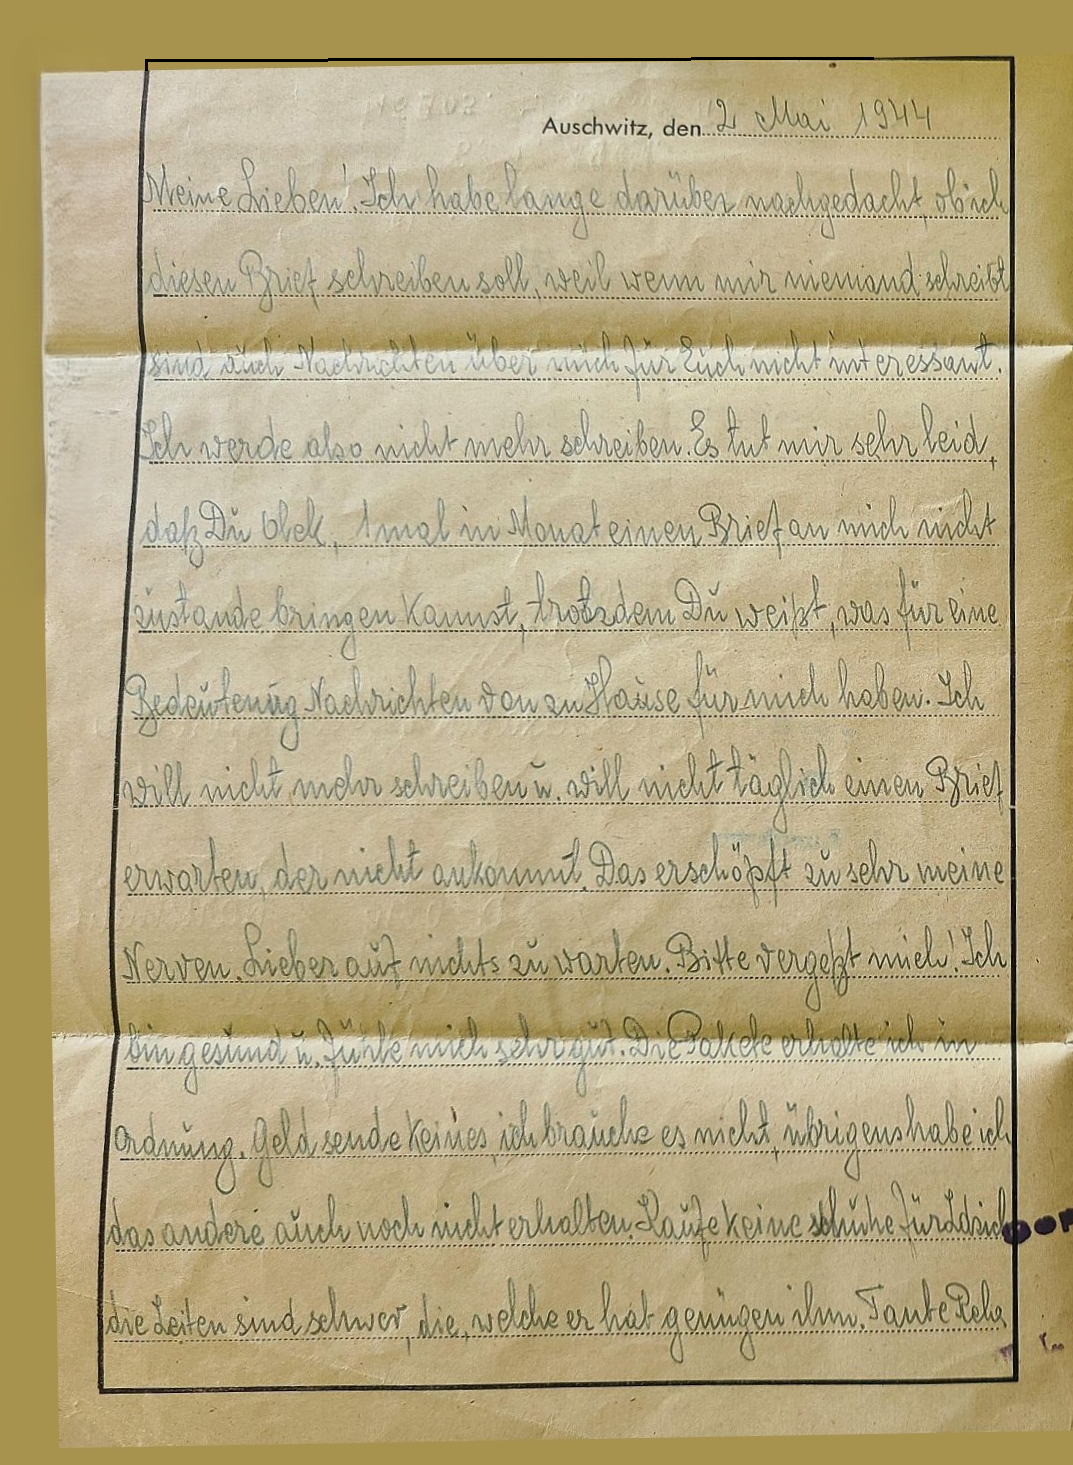 Auschwitz, den 2 Mai 1944
Meine Lieben! Ich habe lange darüber nachgedacht, ob ich
diesen Brief schreiben soll, weil wenn mir niemand schreibt
sind auch Nachrichten über mich für Euch nicht interessant.
Ich werde also nicht mehr schreiben. Es tut mir sehr leid,
daß Du Olek, 1 mal in Monat einen Brief an mich nicht
zustande bringen kannst, trotzdem Du weißt, was für eine
Bedeutenug Nachrichten von zu Hause für mich haben. Ich
will nicht mehr schreiben u. will nicht täglich einen Brief
erwarten, der nicht ankommt. Das erschöpft zu sehr meine
Nerven. Lieber auf nichts zu warten. Bitte vergeßt mich! Ich
bin gesund u. fühle mich sehr gut. Die Pakete erhalte ich in
Ordnung. Geld sende keines, ich brauche es nicht, übrigens habe ich
das andere auch noch nicht erhalten. Kaufe keine schuhe für
die Zeiten sind schwer, die, welche er hat genügen ihm. Tante